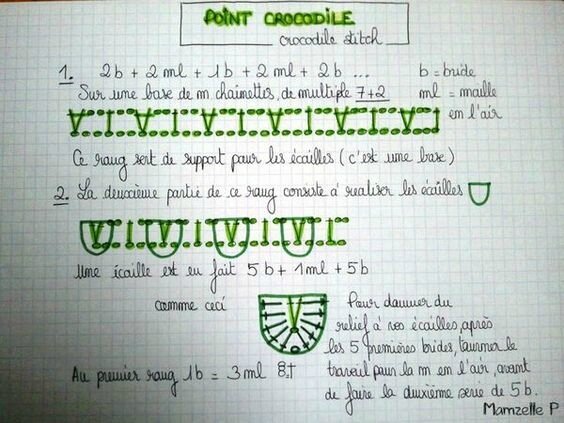 POINT CROCODILE
crocodile stitch
1. 2b + 2ml + 1b + 2ml + 2b ... b = bride
Sur une base de m chainettes, de multiple 7+2 ml = maille
en l'air
Ce rang sert de support pour les écailles (c'est une base)
2. La deuxième partie de ce rang consiste à realiser les écailles
Une écaille est en fait 5b + 1ml + 5b
comme ceci
Pour donner du
relief à vos écailles, après
les 5 premières brides, tourner le
travail pour la m en l'air, avant
de faire la duxième serie de 5b.
Au premier rang 1b = 3ml
Mamzelle P